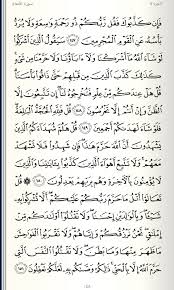 الجزء ٨ سورة الأنعام
فَإِن كَذَّبُوكَ فَقُل رَّبُّكُمْ ذُو رَحْمَةٍ وَٰسِعَةٍ وَلَا يُرَدُّ
بَأْسُهُۥ عَنِ ٱلْقَوْمِ ٱلْمُجْرِمِينَ ١٤٧ سَيَقُولُ ٱلَّذِينَ أَشْرَكُوا۟
لَوْ شَآءَ ٱللَّهُ مَآ أَشْرَكْنَا وَلَآ ءَابَآؤُنَا وَلَا حَرَّمْنَا مِن شَىْءٍ
كَذَٰلِكَ كَذَّبَ ٱلَّذِينَ مِن قَبْلِهِمْ حَتَّىٰ ذَاقُوا۟ بَأْسَنَا
قُلْ هَلْ عِندَكُم مِّنْ عِلْمٍ فَتُخْرِجُوهُ لَنَآ إِن تَتَّبِعُونَ إِلَّا
ٱلظَّنَّ وَإِنْ أَنتُمْ إِلَّا تَخْرُصُونَ ١٤٨ قُلْ فَلِلَّهِ ٱلْحُجَّةُ ٱلْبَٰلِغَةُ
فَلَوْ شَآءَ لَهَدَىٰكُمْ أَجْمَعِينَ ١٤٩ قُلْ هَلُمَّ شُهَدَآءَكُمُ
ٱلَّذِينَ يَشْهَدُونَ أَنَّ ٱللَّهَ حَرَّمَ هَٰذَا فَإِن شَهِدُوا۟ فَلَا تَشْهَدْ
مَعَهُمْ وَلَا تَتَّبِعْ أَهْوَآءَ ٱلَّذِينَ كَذَّبُوا۟ بِـَٔايَٰتِنَا وَٱلَّذِينَ
لَا يُؤْمِنُونَ بِٱلْءَاخِرَةِ وَهُم بِرَبِّهِمْ يَعْدِلُونَ ١٥٠ قُلْ
تَعَالَوْا۟ أَتْلُ مَا حَرَّمَ رَبُّكُمْ عَلَيْكُمْ أَلَّا تُشْرِكُوا۟ بِهِۦ
شَيْـًٔا وَبِٱلْوَٰلِدَيْنِ إِحْسَٰنًا وَلَا تَقْتُلُوٓا۟ أَوْلَٰدَكُم مِّنْ
إِمْلَٰقٍ نَّحْنُ نَرْزُقُكُمْ وَإِيَّاهُمْ وَلَا تَقْرَبُوا۟ ٱلْفَوَٰحِشَ
مَا ظَهَرَ مِنْهَا وَمَا بَطَنَ وَلَا تَقْتُلُوا۟ ٱلنَّفْسَ ٱلَّتِى
حَرَّمَ ٱللَّهُ إِلَّا بِٱلْحَقِّ ذَٰلِكُمْ وَصَّىٰكُم بِهِۦ لَعَلَّكُمْ تَعْقِلُونَ ١٥١